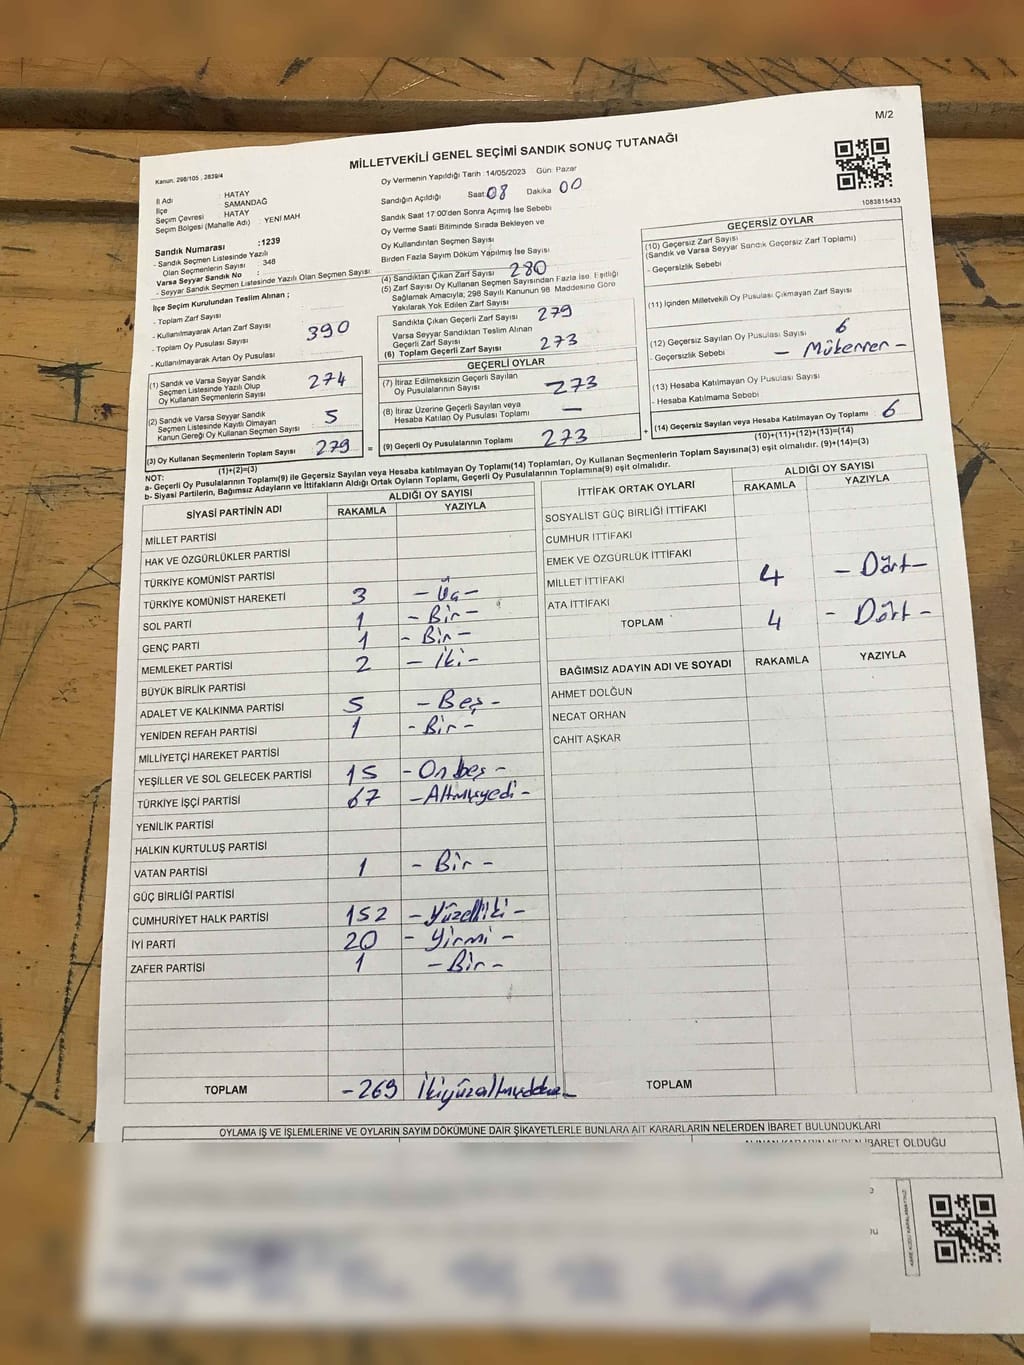 M/2
MİLLETVEKİLİ GENEL SEÇİMİ SANDIK SONUÇ TUTANAĞI
Kanun: 298/105 , 2839/4
İl Adı : HATAY
İlçe : SAMANDAĞ
Seçim Çevresi : HATAY
Seçim Bölgesi (Mahalle Adı) : YENİ MAH
Sandık Numarası :1239
- Sandık Seçmen Listesinde Yazılı
Olan Seçmenlerin Sayısı : 348
Varsa Seyyar Sandık No :
- Seyyar Sandık Seçmen Listesinde Yazılı Olan Seçmen Sayısı:
Oy Vermenin Yapıldığı Tarih : 14/05/2023 Gün: Pazar
Sandığın Açıldığı Saat: 08 Dakika 00
Sandık Saat 17:00'den Sonra Açılmış İse Sebebi
Oy Verme Saati Bitiminde Sırada Bekleyen ve
Oy Kullandırılan Seçmen Sayısı
Birden Fazla Sayım Döküm Yapılmış İse Sayısı
1083815433
İlçe Seçim Kurulundan Teslim Alınan ;
- Toplam Zarf Sayısı
- Kullanılmayarak Artan Zarf Sayısı
- Toplam Oy Pusulası Sayısı 390
- Kullanılmayarak Artan Oy Pusulası
(1) Sandık ve Varsa Seyyar Sandık
Seçmen Listesinde Yazılı Olup
Oy Kullanan Seçmenlerin Sayısı 274
(2) Sandık ve Varsa Seyyar Sandık
Seçmen Listesinde Kayıtlı Olmayan
Kanun Gereği Oy Kullanan Seçmen Sayısı : 5
(3) Oy Kullanan Seçmenlerin Toplam Sayısı 279
(1)+(2)=(3)
(4) Sandıktan Çıkan Zarf Sayısı 280
(5) Zarf Sayısı Oy Kullanan Seçmen Sayısından Fazla İse, Eşitliği
Sağlamak Amacıyla; 298 Sayılı Kanunun 98. Maddesine Göre
Yakılarak Yok Edilen Zarf Sayısı
Sandıkta Çıkan Geçerli Zarf Sayısı 279
Varsa Seyyar Sandıktan Teslim Alınan
Geçerli Zarf Sayısı
(6) Toplam Geçerli Zarf Sayısı 273
GEÇERLİ OYLAR
(7) İtiraz Edilmeksizin Geçerli Sayılan
Oy Pusulalarının Sayısı 273
(8) İtiraz Üzerine Geçerli Sayılan veya
Hesaba Katılan Oy Pusulası Toplamı —
= (9) Geçerli Oy Pusulalarının Toplamı 273
GEÇERSİZ OYLAR
(10) Geçersiz Zarf Sayısı
(Sandık ve Varsa Seyyar Sandık Geçersiz Zarf Toplamı)
- Geçersizlik Sebebi
(11) İçinden Milletvekili Oy Pusulası Çıkmayan Zarf Sayısı
(12) Geçersiz Sayılan Oy Pusulası Sayısı 6
- Geçersizlik Sebebi - Mükerrer -
(13) Hesaba Katılmayan Oy Pusulası Sayısı
- Hesaba Katılmama Sebebi
+ (14) Geçersiz Sayılan veya Hesaba Katılmayan Oy Toplamı : 6
(10)+(11)+(12)+(13)=(14)
NOT:
a- Geçerli Oy Pusulalarının Toplamı(9) ile Geçersiz Sayılan veya Hesaba katılmayan Oy Toplamı(14) Toplamları, Oy Kullanan Seçmenlerin Toplam Sayısına(3) eşit olmalıdır. (9)+(14)=(3)
b- Siyasi Partilerin, Bağımsız Adayların ve İttifakların Aldığı Ortak Oyların Toplamı, Geçerli Oy Pusulalarının Toplamına(9) eşit olmalıdır.
SİYASİ PARTİNİN ADI ALDIĞI OY SAYISI
RAKAMLA YAZIYLA
MİLLET PARTİSİ
HAK VE ÖZGÜRLÜKLER PARTİSİ
TÜRKİYE KOMÜNİST PARTİSİ
TÜRKİYE KOMÜNİST HAREKETİ 3 - Üç -
SOL PARTİ 1 - Bir -
GENÇ PARTİ 1 - Bir -
MEMLEKET PARTİSİ 2 - İki -
BÜYÜK BİRLİK PARTİSİ
ADALET VE KALKINMA PARTİSİ 5 - Beş -
YENİDEN REFAH PARTİSİ 1 - Bir -
MİLLİYETÇİ HAREKET PARTİSİ
YEŞİLLER VE SOL GELECEK PARTİSİ 15 - On beş -
TÜRKİYE İŞÇİ PARTİSİ 67 - Altmışyedi -
YENİLİK PARTİSİ
HALKIN KURTULUŞ PARTİSİ
VATAN PARTİSİ 1 - Bir -
GÜÇ BİRLİĞİ PARTİSİ
CUMHURİYET HALK PARTİSİ 152 - Yüzelliiki -
İYİ PARTİ 20 - Yirmi -
ZAFER PARTİSİ 1 - Bir -
TOPLAM -269 İkiyüzaltmışdokuz-
İTTİFAK ORTAK OYLARI ALDIĞI OY SAYISI
RAKAMLA YAZIYLA
SOSYALİST GÜÇ BİRLİĞİ İTTİFAKI
CUMHUR İTTİFAKI
EMEK VE ÖZGÜRLÜK İTTİFAKI
MİLLET İTTİFAKI 4 - Dört -
ATA İTTİFAKI
TOPLAM 4 - Dört -
BAĞIMSIZ ADAYIN ADI VE SOYADI RAKAMLA YAZIYLA
AHMET DOLĞUN
NECAT ORHAN
CAHİT AŞKAR
TOPLAM
OYLAMA İŞ VE İŞLEMLERİNE VE OYLARIN SAYIM DÖKÜMÜNE DAİR ŞİKAYETLERLE BUNLARA AİT KARARLARIN NELERDEN İBARET BULUNDUKLARI
İBARET OLDUĞU